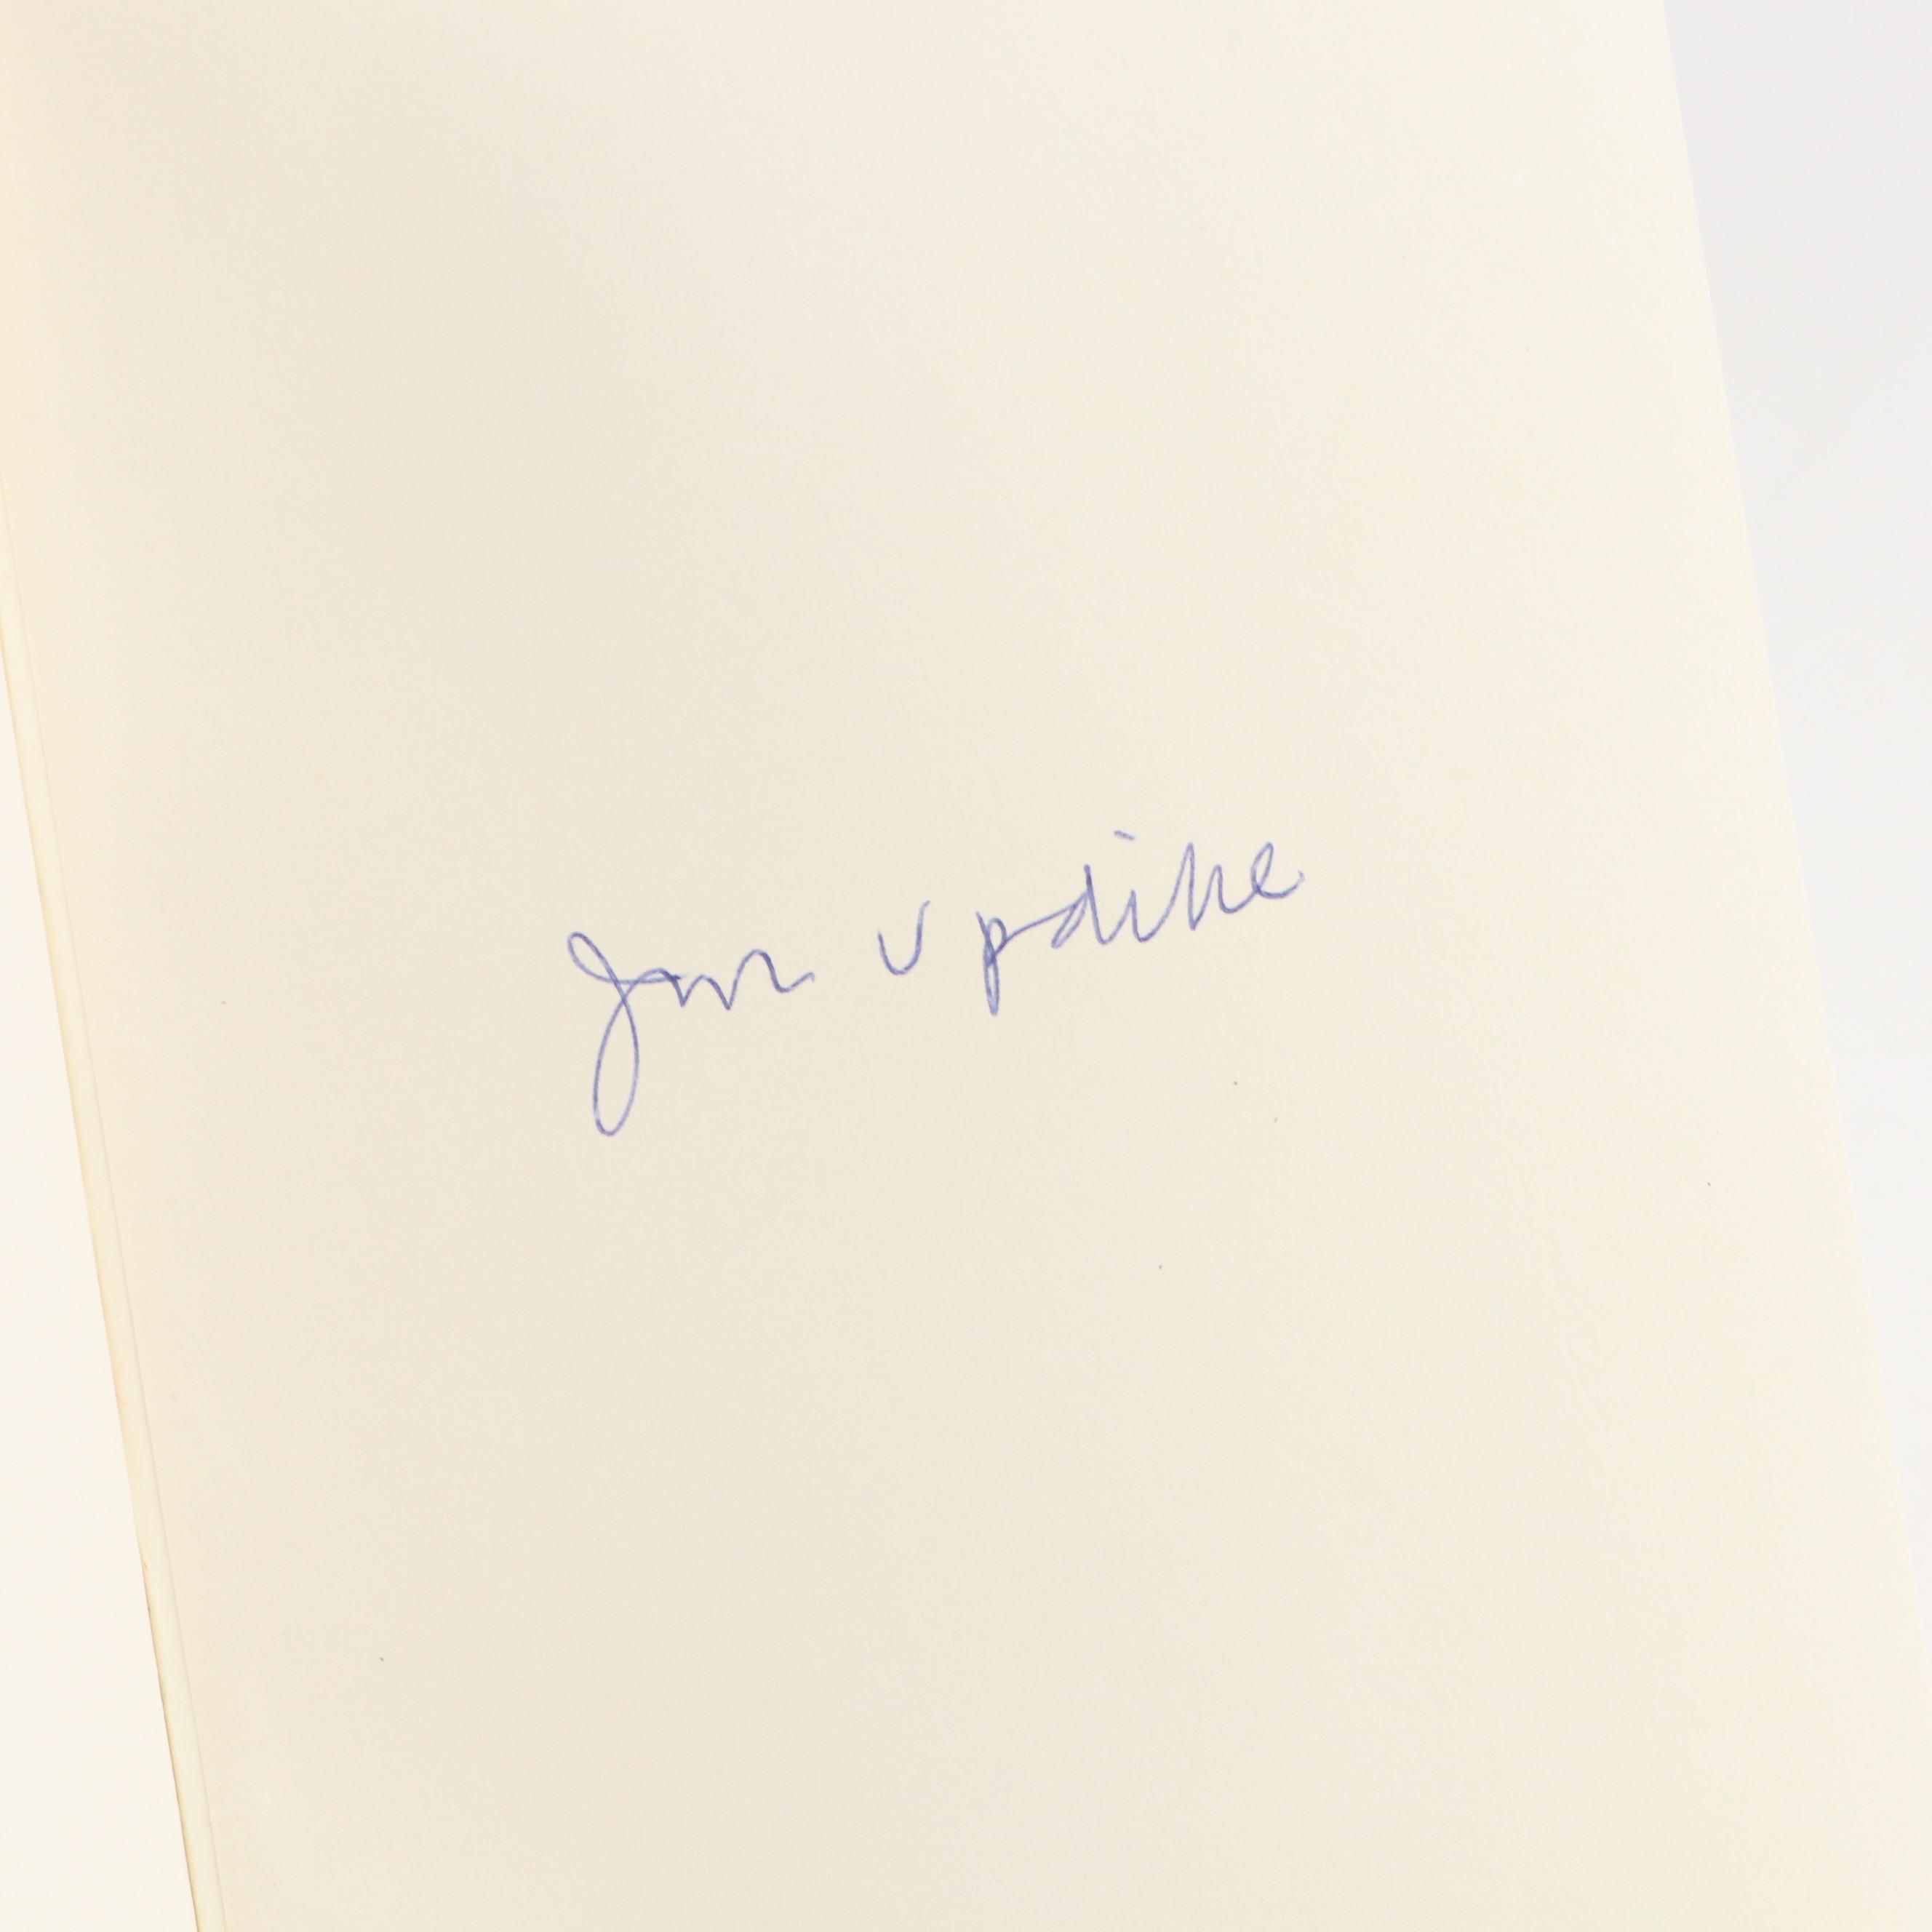 John Updike